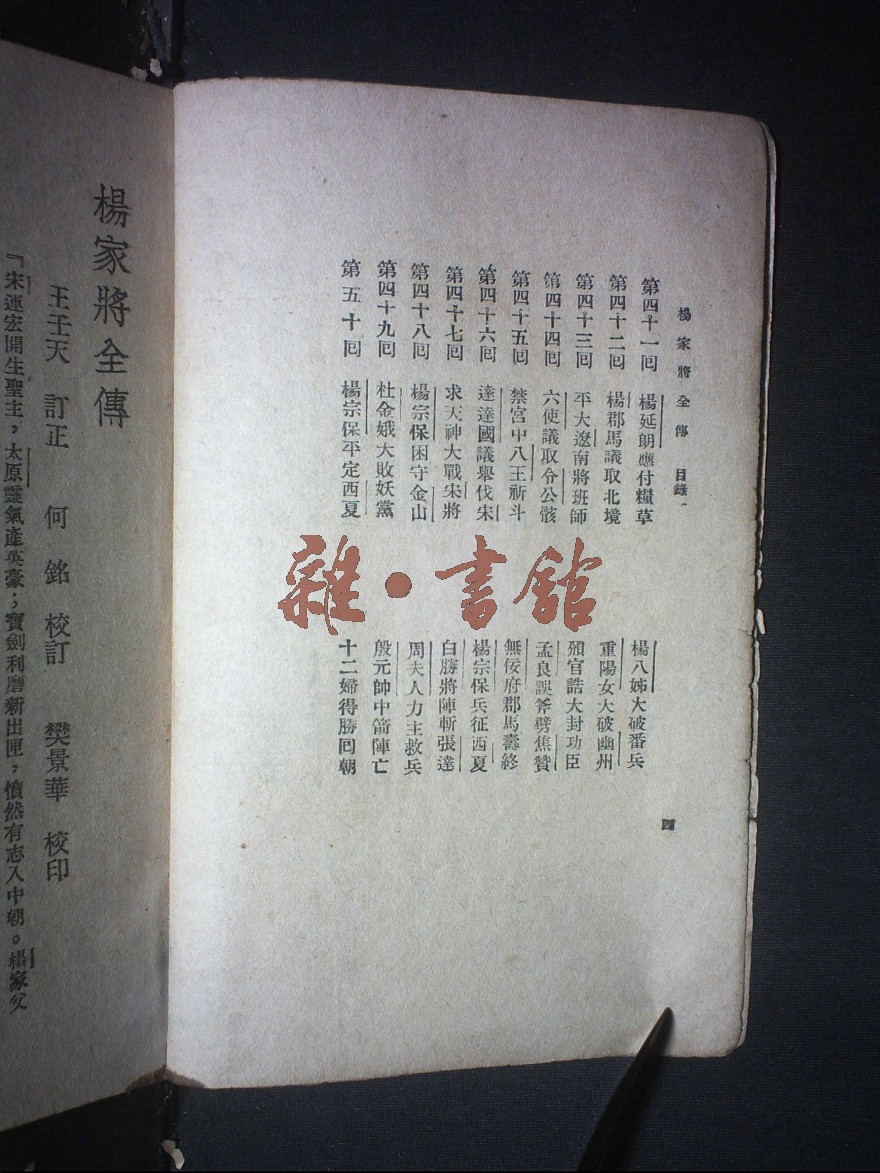 楊家將全傳 目錄
四
第四十一囘 楊延朗應付糧草 楊八姊大破番兵
第四十二囘 楊郡馬議取北境 重陽女大破幽州
第四十三囘 平大遼南將班師 頒官誥大封功臣
第四十四囘 六使議取令公骸 孟良誤斧劈焦贊
第四十五囘 禁宮中八王祈斗 無佞府郡馬壽終
第四十六囘 達達國議舉伐宋 楊宗保兵征西夏
第四十七囘 求天神大戰宋將 白勝將陣斬張達
第四十八囘 楊宗保困守金山 周夫人力主救兵
第四十九囘 杜金娥大敗妖黨 殷元帥中箭陣亡
第五十囘 楊宗保平定西夏 十二婦得勝囘朝
雜·書館
楊家將全傳
王壬天 訂正 何銘 校訂 樊景華 校印
『宋運宏開生聖主，太原靈氣產英豪；寶劍利磨新出匣，憤然有志入中朝。楊家父